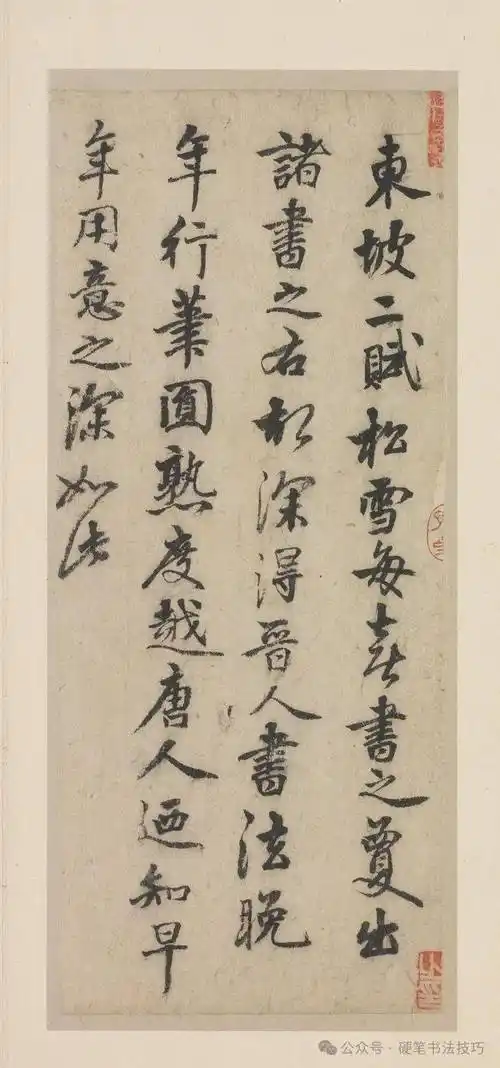 東坡二賦松雪每喜書之夐出
諸書之右松深得晉人書法晚
年行筆圓熟度越唐人迺知早
年用意之深如此
公众号·硬笔书法技巧